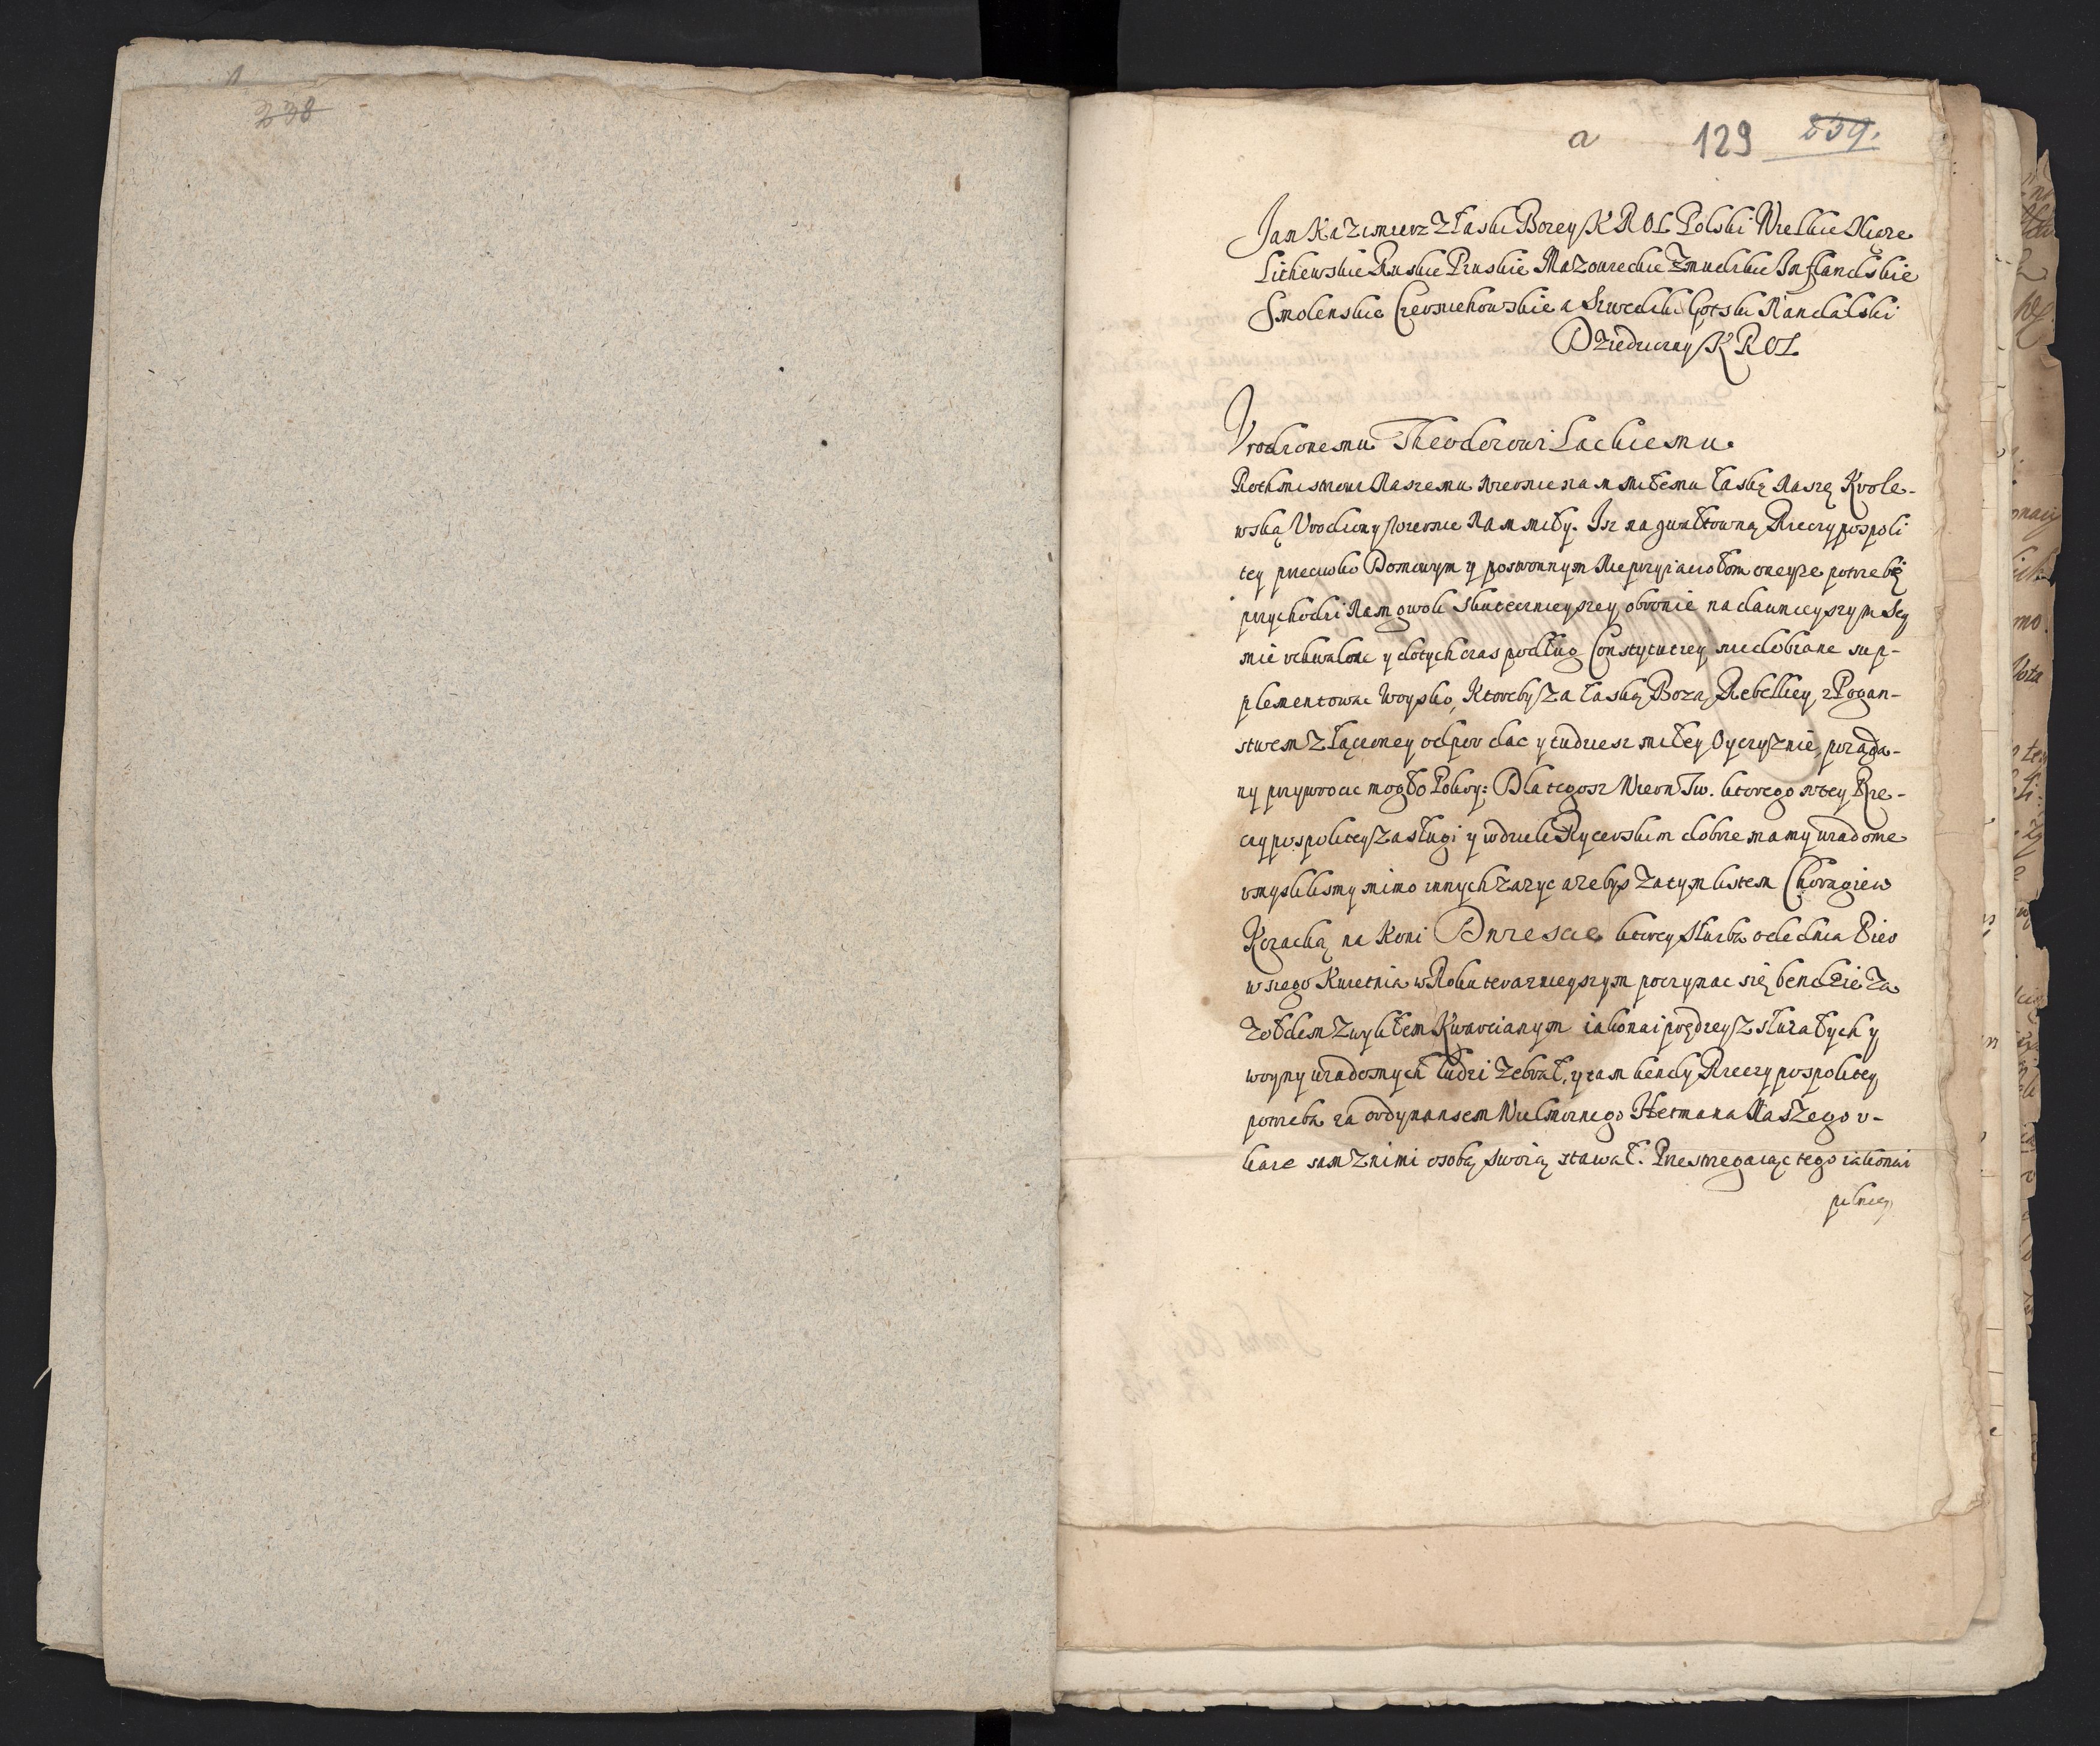 238
a 129 239.
Jan Kazimierz Z Łaski Bozey KROL Polski Wielkie Xiąze
Lithewskie Ruskie Pruskie Mazoweckie Zmudzkie Inflandskie
Smolenskie Czerniehowskie a Szwedzki Gotski Wandalski
Dziedziczny KROL
Vrodzonemu Theodorowi Lackiemu
Rothmistrzowi Naszemu wiernie nam miłemu łaskę Naszę Krole-
wską Vrodzony wiernie Nam miły. Isz na gwałtowną Rzeczypospoli
tey przeciwko Domowym y postronnym Nieprzyiaciołom oneysze potrzebę
przychodzi Nam gwoli skutecznieyszey obronie na dawnieyszym Sey
mie vchwalone y dotychczas podług Constytutiey niedobrane sup-
plementowac Woysko, Ktoreby za łaską Bozą Rebelliey z Pogan-
stwem złączoney odpor dac y tudziesz miłey Oyczyznie, poząda-
ny przywrocic mogło Pokoy: Dla tegosz Wiern Tw. ktorego w tey Rze-
czypospolitey zasługi y w dziele Rycerskim dobrze mamy wiadome
vmyslilismy mimo innych zazyc azebys za tym listem Chorągiew
Kozacką na Koni Dwiescie ktorey sluzba ode dnia Pier
wszego Kwietnia w Roku teraznieyszym poczynac się bendzie za
Zołdem zwykłem Kwarcianym iakonaiprędzey z słuzałych y
woyny wiadomych ludzi zebrał, y tam kendy Rzeczypospolitey
potrzeba za ordynansem Wielmoznego Hetmana Naszego v-
kaze sam z nimi osobą swoią stawał. Przestrzegaiąc tego iakonai
pilniey